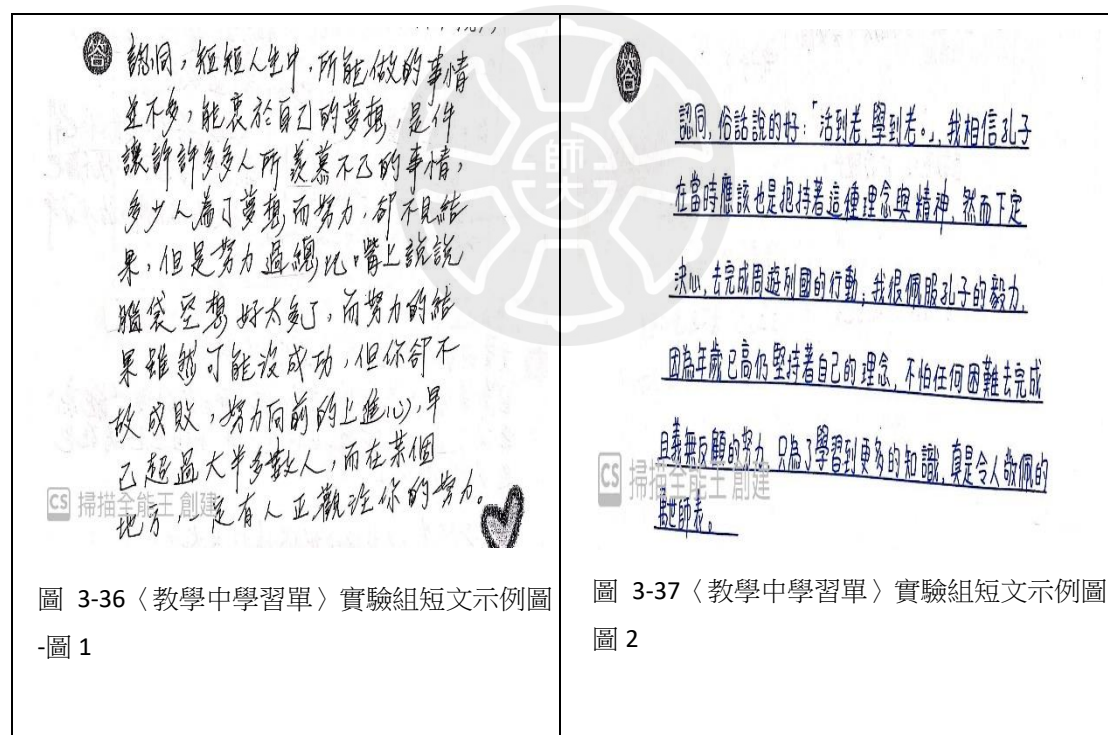 答 認同，短短人生中，所能做的事情
並不多，能衷於自己的夢想，是件
讓許許多多人所羨慕不已的事情，
多少人為了夢想而努力，卻不見結
果，但是努力過總比嘴上說說
腦袋空想好太多了，而努力的結
果雖然可能沒成功，但你卻不
故成敗，努力向前的上進心，早
已超過大半多數人，而在某個
地方，一定有人正觀注你的努力。
CS 掃描全能王 創建
圖 3-36〈教學中學習單〉實驗組短文示例圖
-圖 1
答
認同，俗話說的好：「活到老，學到老。」，我相信孔子
在當時應該也是抱持著這種理念與精神，然而下定
決心，去完成周遊列國的行動；我很佩服孔子的毅力，
因為年歲已高仍堅持著自己的理念，不怕任何困難去完成
且義無反顧的努力，只為了學習到更多的知識，真是令人敬佩的
萬世師表。
CS 掃描全能王 創建
圖 3-37〈教學中學習單〉實驗組短文示例圖
圖 2
師大